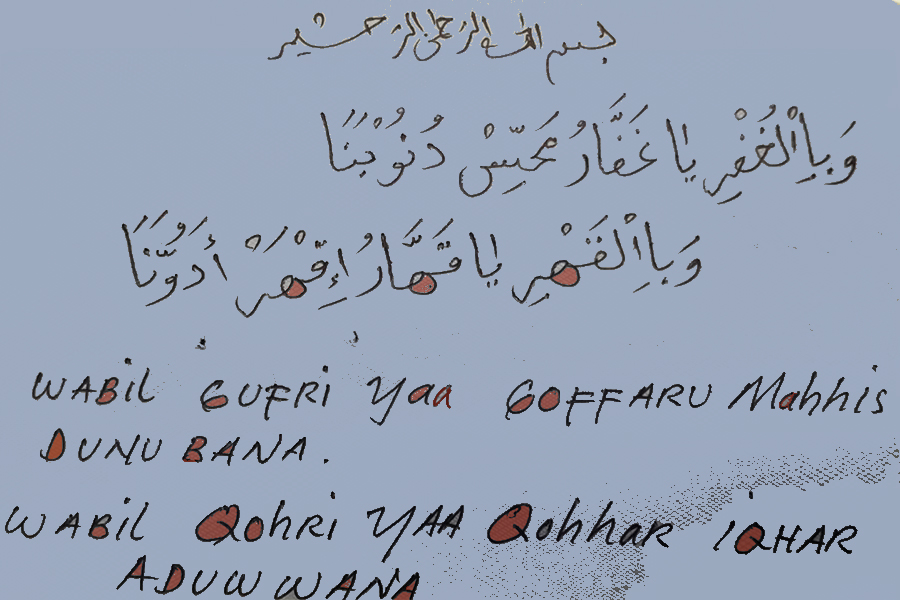 بسم الله الرحمن الرحيم
وَبِاالْغُفْرِ يَا غَفَّارُ مَحِّيسْ دُنُوْبَنَا
وَبِاالْقَهْرِ يَا قَهَّارُ إِقْهَرْ أَدُوَّنَا
WABIL GUFRI Yaa GOFFARU Mahhis
DUNU BANA.
WABIL QohRI YAA Qohhar IQHAR
ADUWWANA